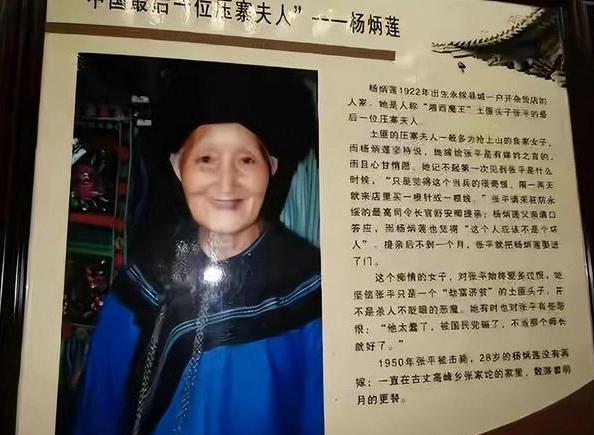 中国最后一位压寨夫人”——杨炳莲
杨炳莲1922年出生永绥县城一户开杂货店的
人家。她是人称“湘西魔王”土匪头子张平的最
后一位压寨夫人。
土匪的压寨夫人一般多为抢上山的良家女子，
而杨炳莲坚持说，她嫁给张平是有媒妁之言的，
而且心甘情愿。她记不起第一次见到张平是什么
时候，“只是觉得这个当兵的很奇怪，隔一两天
就来店里买一根针或一根线。”张平请来驻防永
绥的最高司令长官舒安卿提亲；杨炳莲父亲满口
答应，而杨炳莲也觉得“这个人应该不是个坏
人”。提亲后不到一个月，张平就把杨炳莲娶进
了门。
这个痴情的女子，对张平始终爱多过恨，她
坚信张平只是一个“劫富济贫”的土匪头子，并
不是杀人不眨眼的恶魔。她有时也对张平有些怨
恨：“他太蠢了，被国民党骗了，不当那个师长
就好了。”
1950年张平被击毙，28岁的杨炳莲没有再
嫁；一直在古丈高峰乡张家论的家里，数落着明
月的更替。